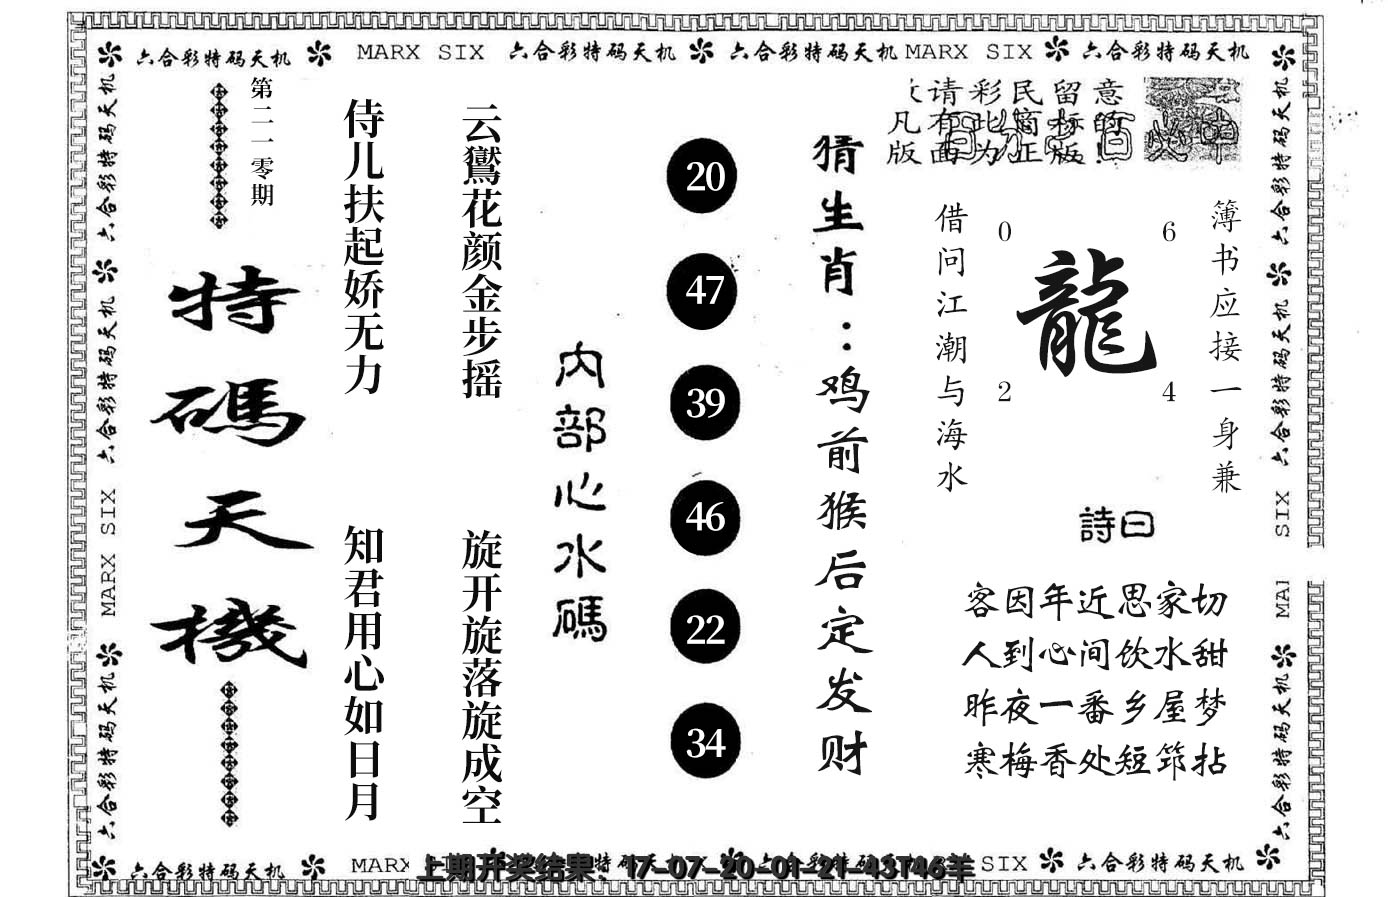 六合彩特码天机 MARX SIX 六合彩特码天机 六合彩特码天机 MARX SIX 六合彩特码天机
请彩民留意
凡有此商标的
版面为正版!
簿书应接一身兼
0 6
龍
2 4
借问江潮与海水
詩曰
客因年近思家切
人到心间饮水甜
昨夜一番乡屋梦
寒梅香处短筇拈
猜生肖：鸡前猴后定发财
20
47
39
46
22
34
内部心水碼
云鬢花颜金步摇
旋开旋落旋成空
侍儿扶起娇无力
知君用心如日月
第二一零期
特碼天機
六合彩特码天机
六合彩特码天机
MARX SIX
六合彩特码天机
六合彩特码天机
六合彩特码天机
SIX
六合彩特码天机
六合彩特码天机 MARX SIX 六合彩特码天机
上期开奖结果：17-07-20-01-21-43T46羊